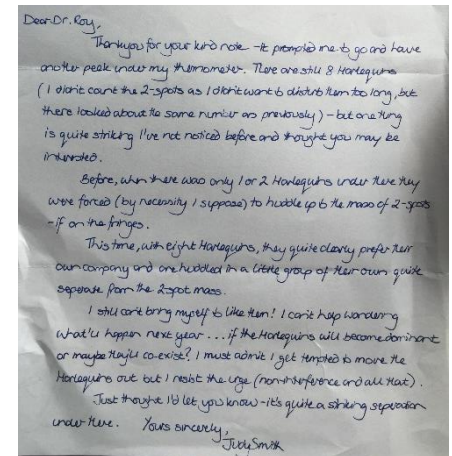 Dear Dr. Roy,
Thankyou for your kind note - it prompted me to go and have
another peek under my thermometer. There are still 8 Harlequins
(I didn't count the 2-spots as I didn't want to disturb them too long, but
there looked about the same number as previously) - but one thing
is quite striking I've not noticed before and thought you may be
interested.
Before, when there was only 1 or 2 Harlequins under there they
were forced (by necessity I suppose) to huddle up to the mass of 2-spots
- if on the fringes.
This time, with eight Harlequins, they quite clearly prefer their
own company and are huddled in a little group of their own quite
seperate from the 2spot mass.
I still can't bring myself to like them! I can't help wondering
what'll happen next year... if the Harlequins will become dominant
or maybe they'll co-exist? I must admit I get tempted to move the
Harlequins out but I resist the urge (non-interference and all that).
Just thought I'd let you know - it's quite a striking seperation
under there. Yours sincerely,
Judy Smith